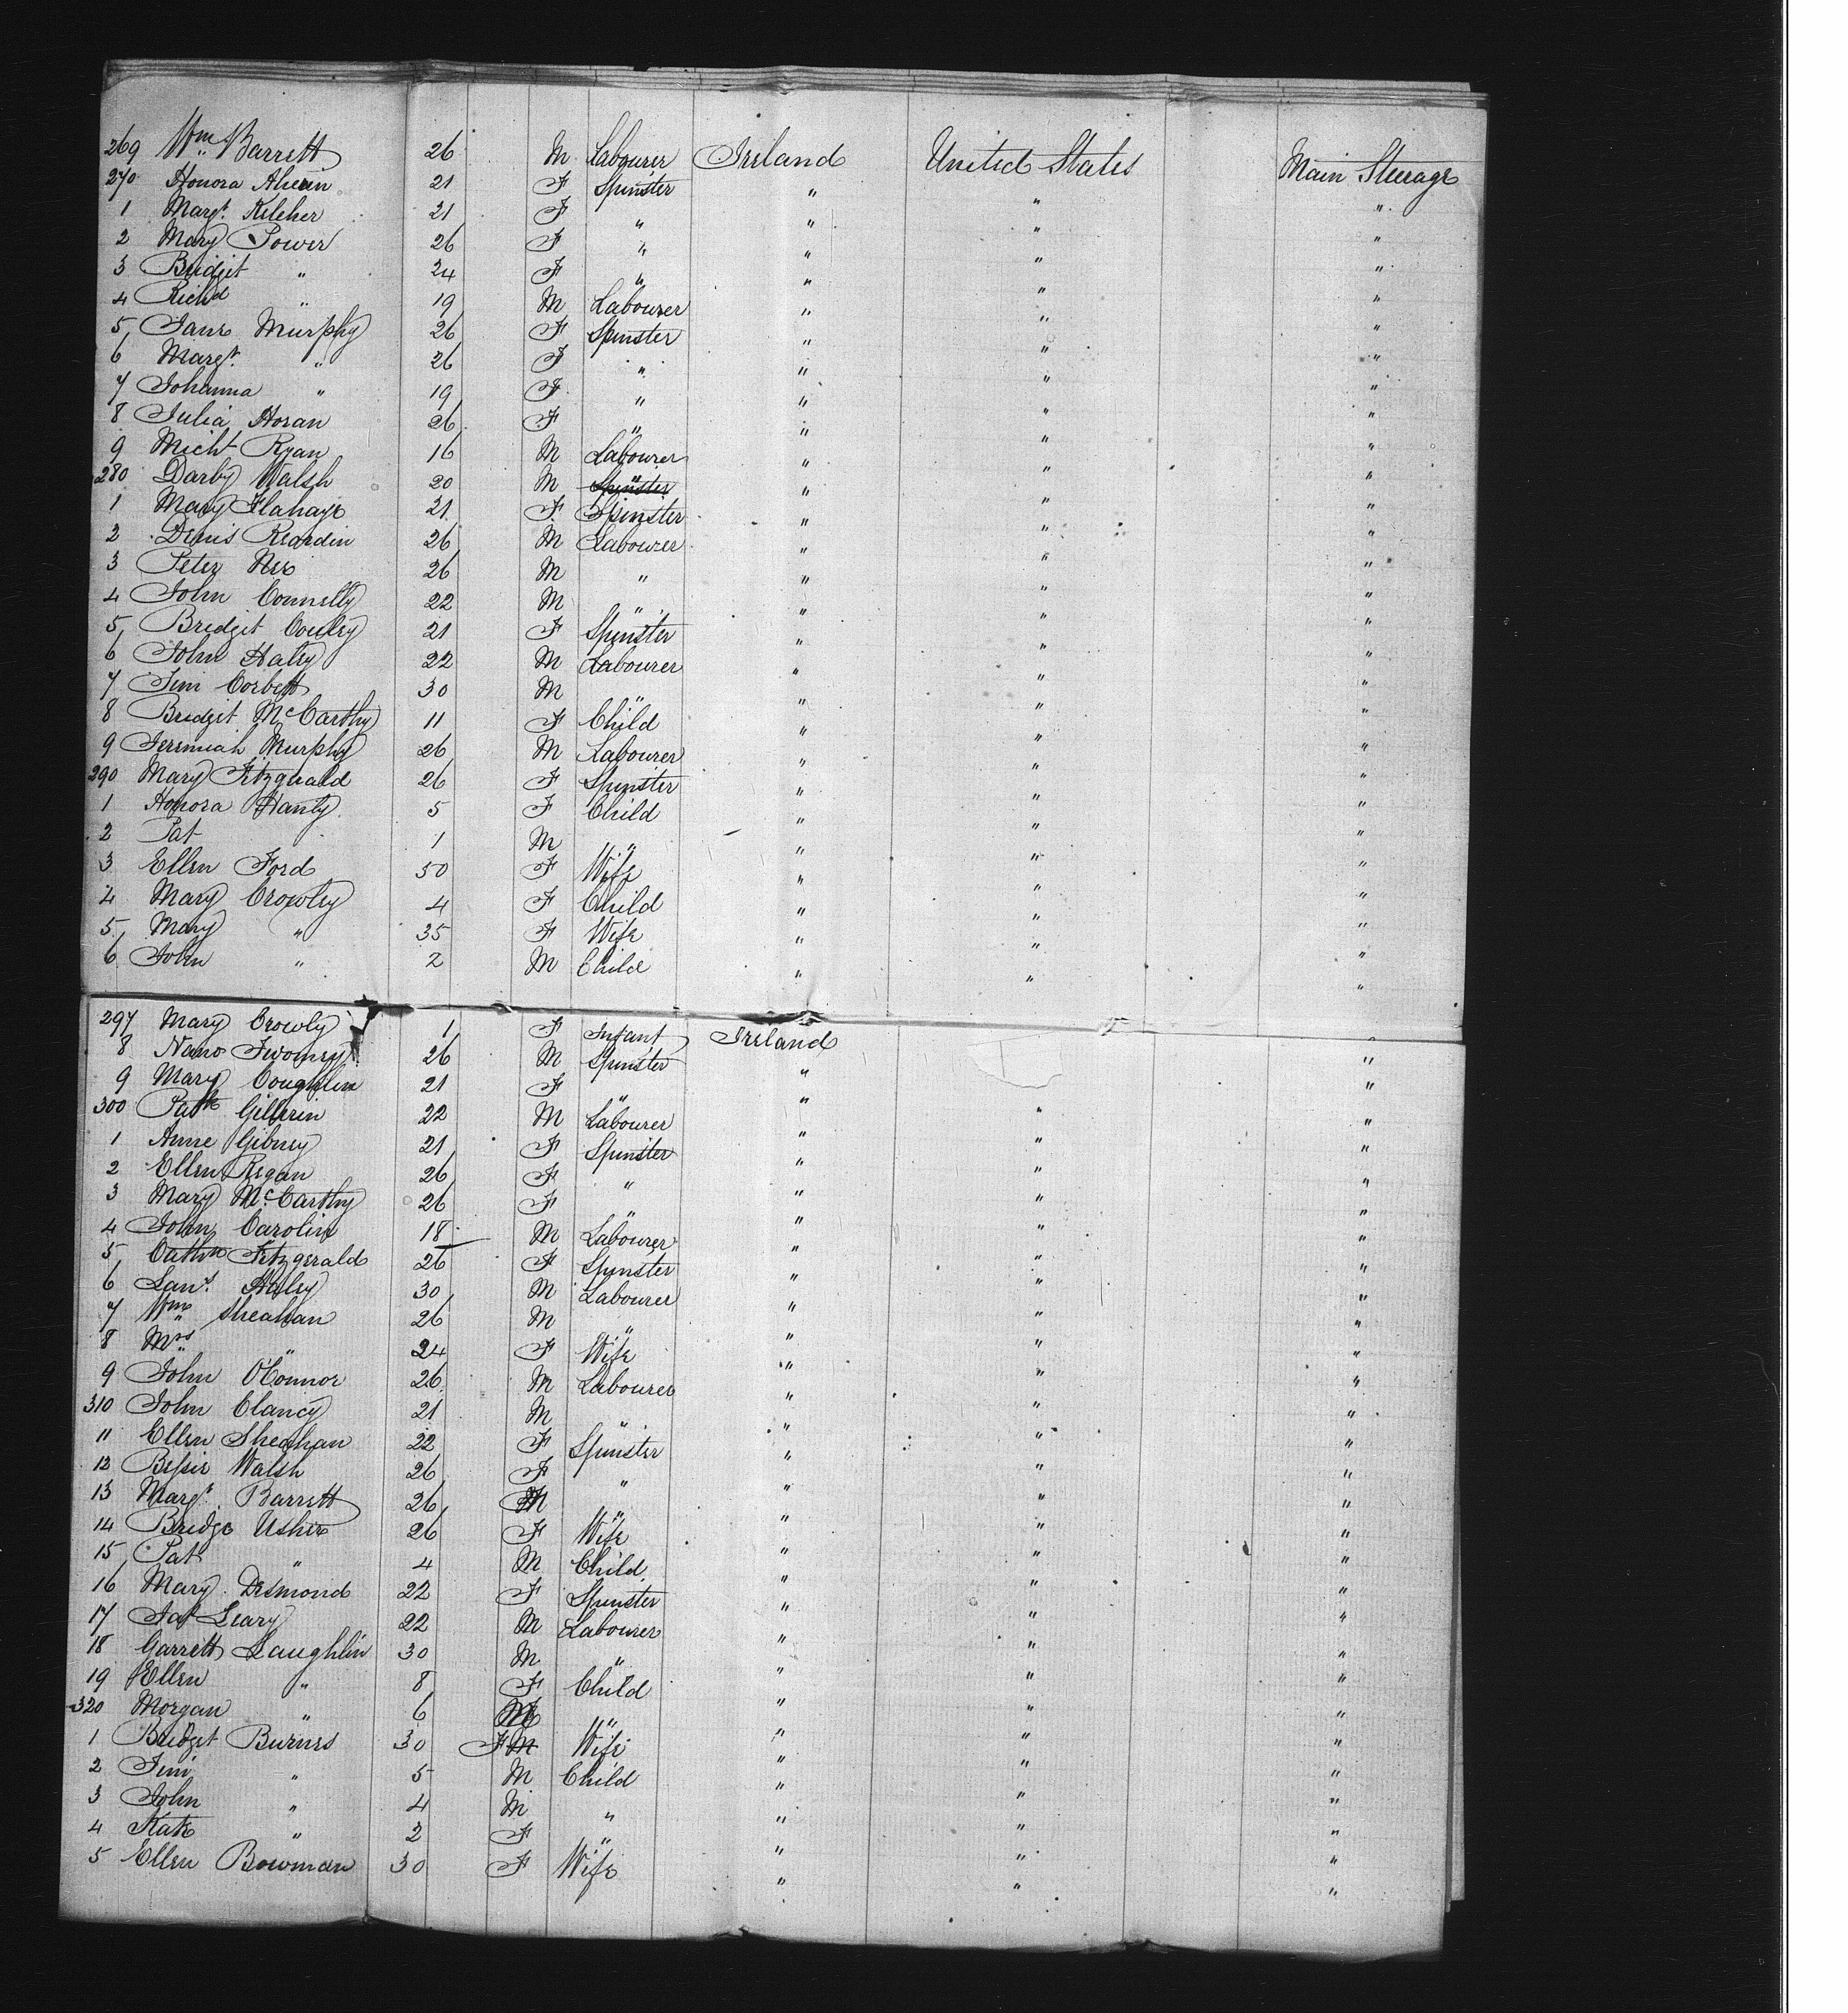 269 Wm. Barrett 26 M Labourer Ireland United States Main Steerage
270 Honora Aherin 21 F Spinster " " "
1 Margt. Keleher 21 F " " " "
2 Mary Power 26 F " " " "
3 Bridget " 24 F " " " "
4 Richd " 19 M Labourer " " "
5 Jane Murphy 26 F Spinster " " "
6 Margt. " 26 F " " " "
7 Johanna " 19 F " " " "
8 Julia Horan 26 F " " " "
9 Michl Ryan 16 M Labourer " " "
280 Darby Walsh 20 M Spinster " " "
1 Mary Flahaye 21 F Spinster " " "
2 Denis Reardin 26 M Labourer " " "
3 Peter 26 M " " " "
4 John Connelly 22 M " " " "
5 Bridget Couley 21 F Spinster " " "
6 John Haley 22 M Labourer " " "
7 Jim Corbett 30 M " " " "
8 Bridget McCarthy 11 F Child " " "
9 Jeremiah Murphy 26 M Labourer " " "
290 Mary Fitzgerald 26 F Spinster " " "
1 Honora Hanty 5 F Child " " "
2 Pat 1 M " " " "
3 Ellen Ford 50 F Wife " " "
4 Mary Crowley 4 F Child " " "
5 Mary " 35 F Wife " " "
6 John " 2 M Child " " "
297 Mary Crowly 1 F Infant Ireland "
8 Nano Twomey 26 M Spinster " "
9 Mary Coughlin 21 F " " "
300 Patk Gillerin 22 M Labourer " " "
1 Anne Gibney 21 F Spinster " " "
2 Ellen Regan 26 F " " " "
3 Mary McCarthy 26 F " " " "
4 John Carolin 18 M Labourer " " "
5 Cathn Fitzgerald 26 F Spinster " " "
6 Haley 30 M Labourer " " "
7 Wm Sheahan 26 M " " " "
8 Mrs " 24 F Wife " " "
9 John O'Connor 26 M Labourer " " "
310 John Clancy 21 M " " " "
11 Ellen Sheahan 22 F Spinster " " "
12 Bessie Walsh 26 F " " " "
13 Margt. Barrett 26 F " " " "
14 Bridge Usher 26 F Wife " " "
15 Pat " 4 M Child " " "
16 Mary Desmond 22 F Spinster " " "
17 Leary 22 M Labourer " " "
18 Garrett Laughlin 30 M " " " "
19 Ellen " 8 F Child " " "
320 Morgan " 6 M " " " "
1 Bridget Burnes 30 F M Wife " " "
2 Jim " 5 M Child " " "
3 John " 4 M " " " "
4 Kate " 2 F " " " "
5 Ellen Bowman 30 F Wife " " "